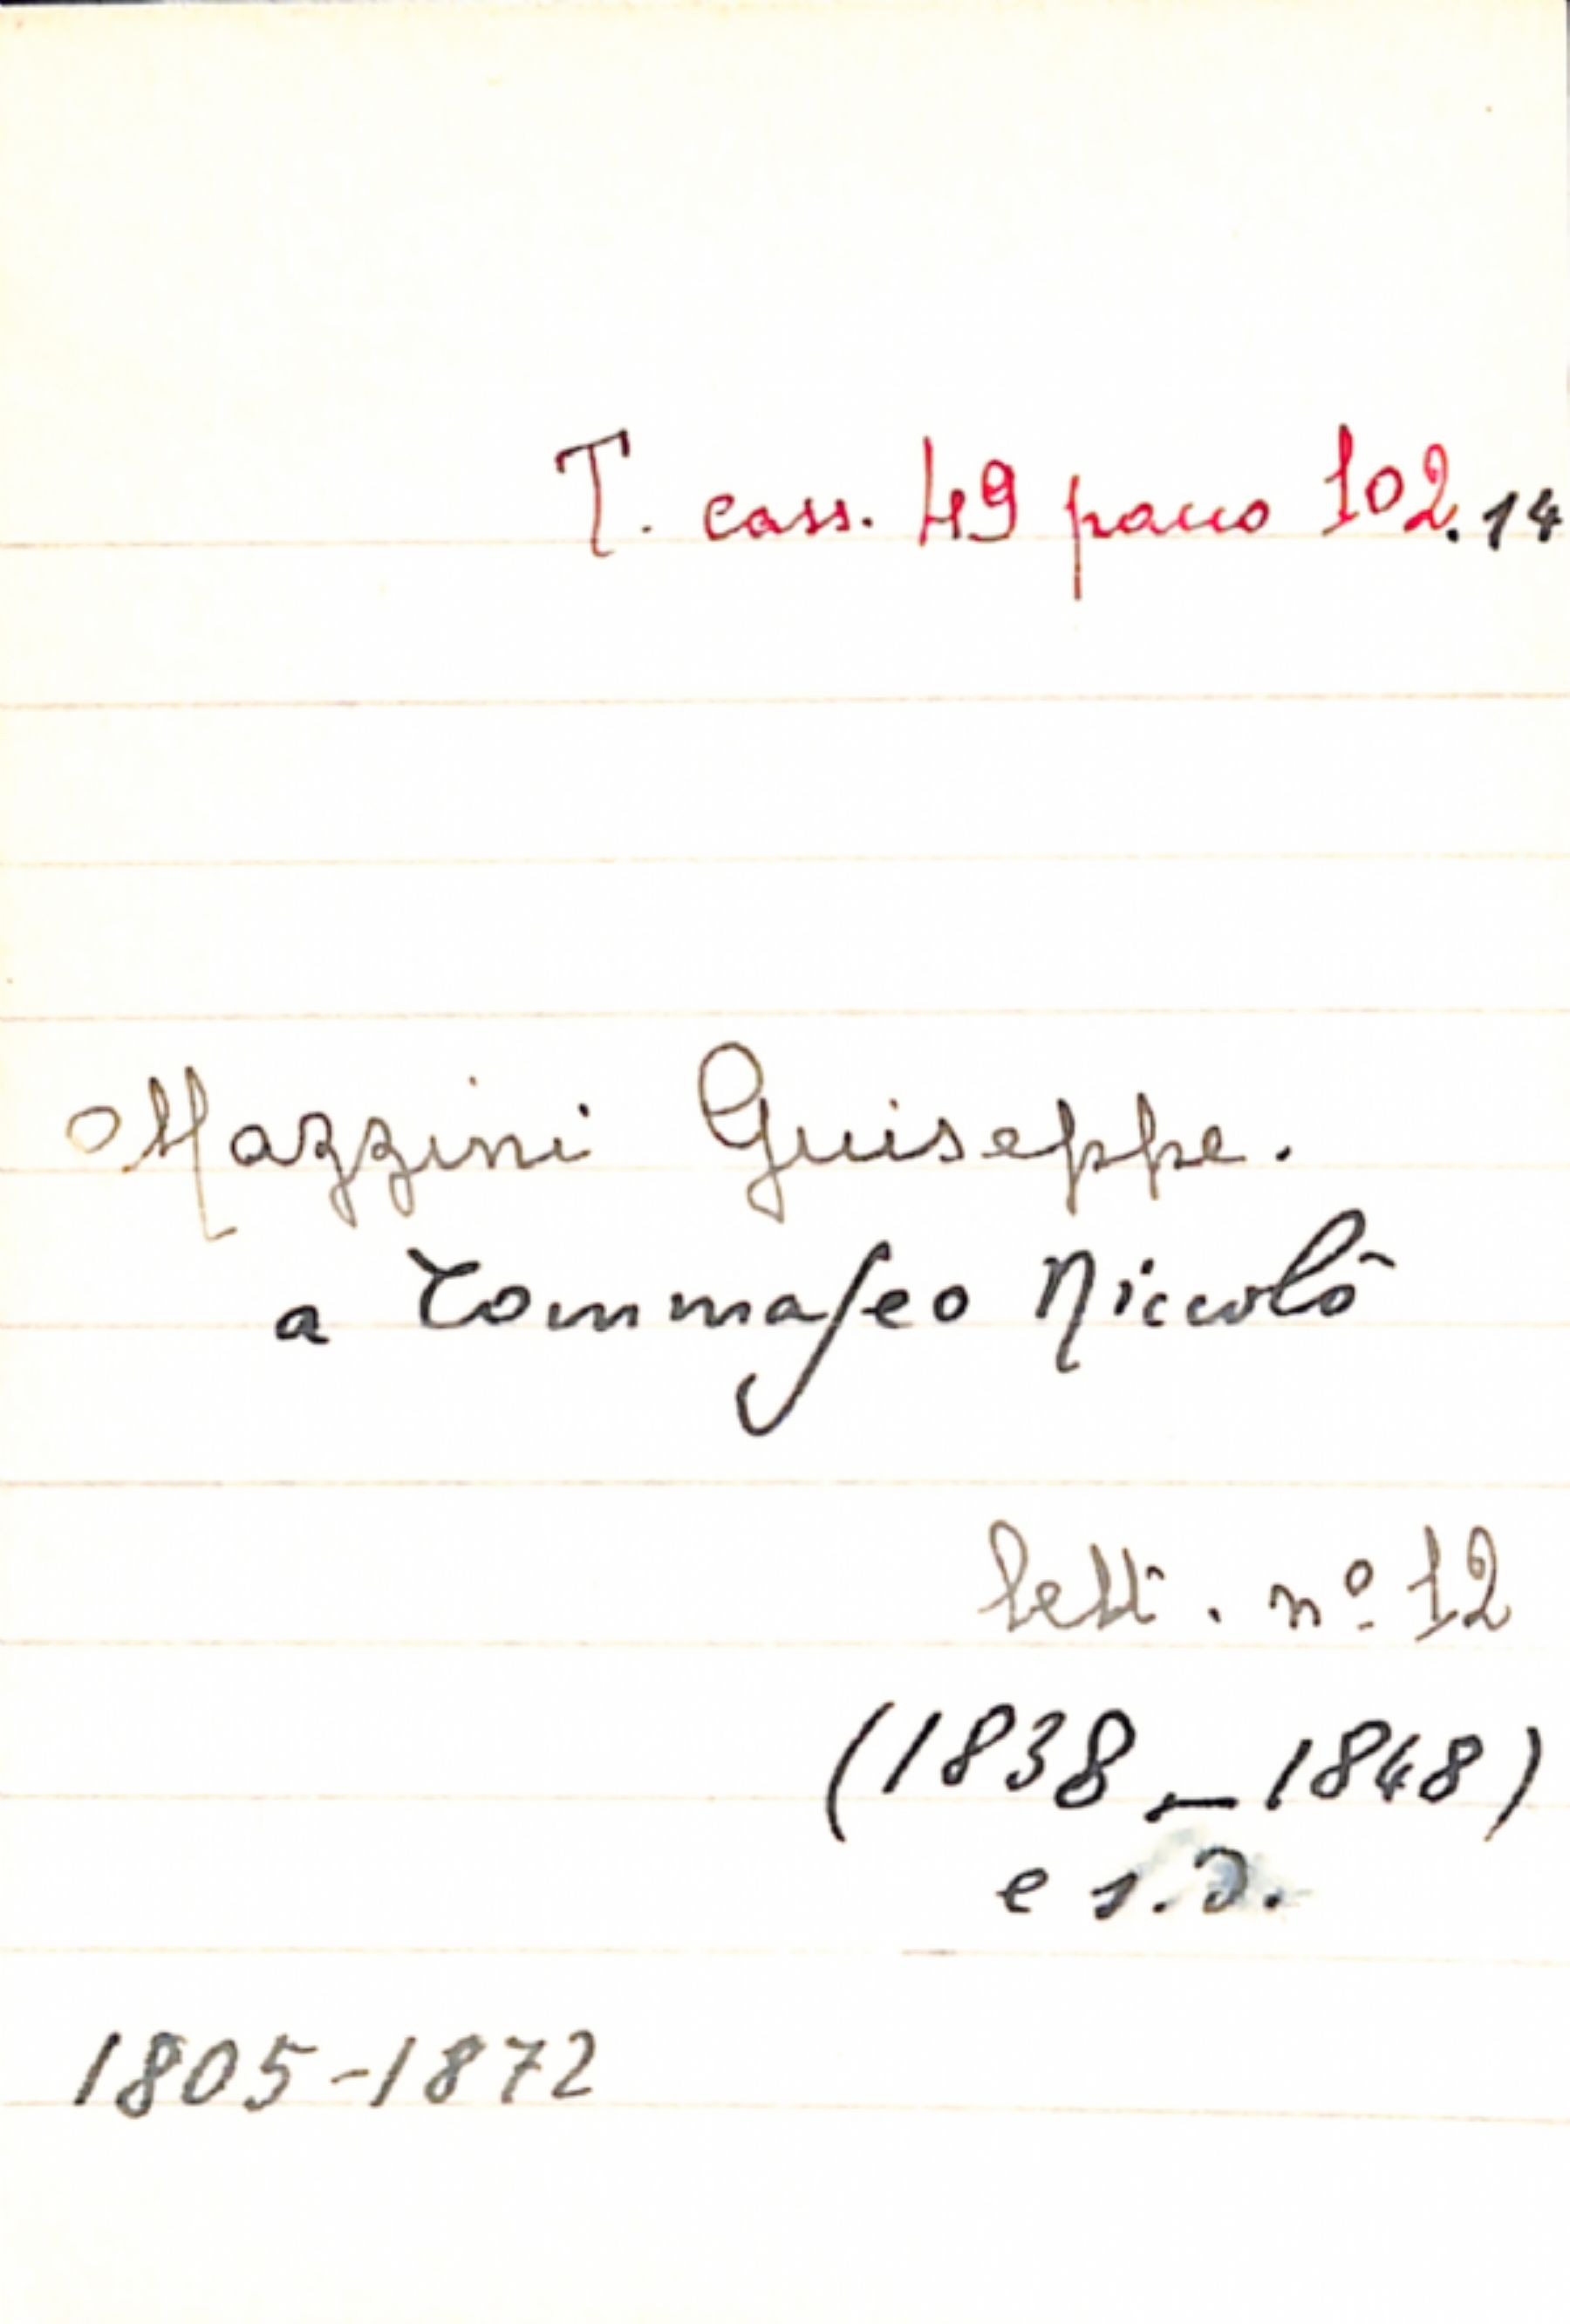 T. cass. 49 pacco 102.14
Mazzini Giuseppe.
a Tommaseo Niccolò
lett. nº 12
(1838 - 1848)
e s.d.
1805-1872